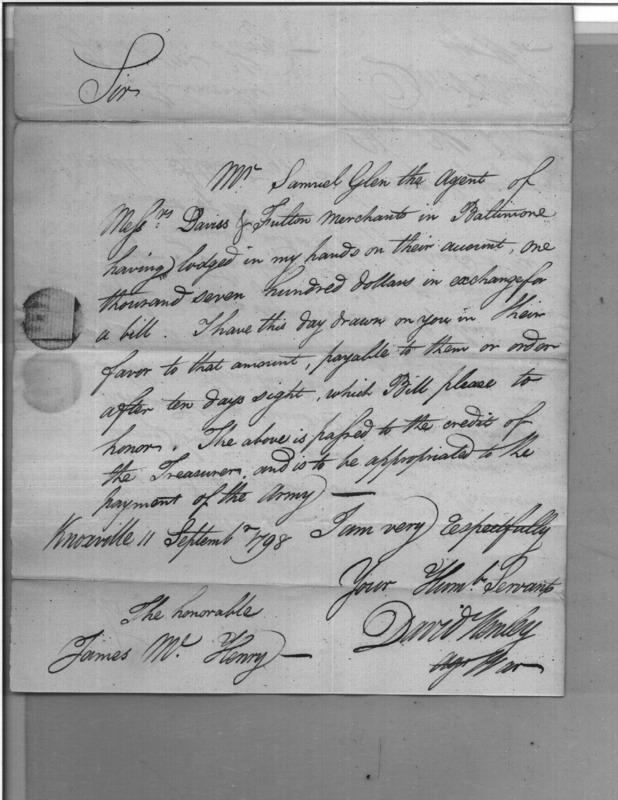 Sir
Mr. Samuel Glen the Agent of
Messrs. Daviss & Fulton Merchants in Baltimore
having lodged in my hands on their account, one
thousand seven hundred dollars in exchange for
a bill. I have this day drawn on you in their
favor to that amount, payable to them or order
after ten days sight, which Bill please to
honor. The above is passed to the credit of
the Treasurer, and is to be appropriated to the
payment of the Army —
Knoxville 11 Septembr 1798 I am very Respectfully
Your Humbe Servant
The honorable David Henley
James Mc Henry — Agt War